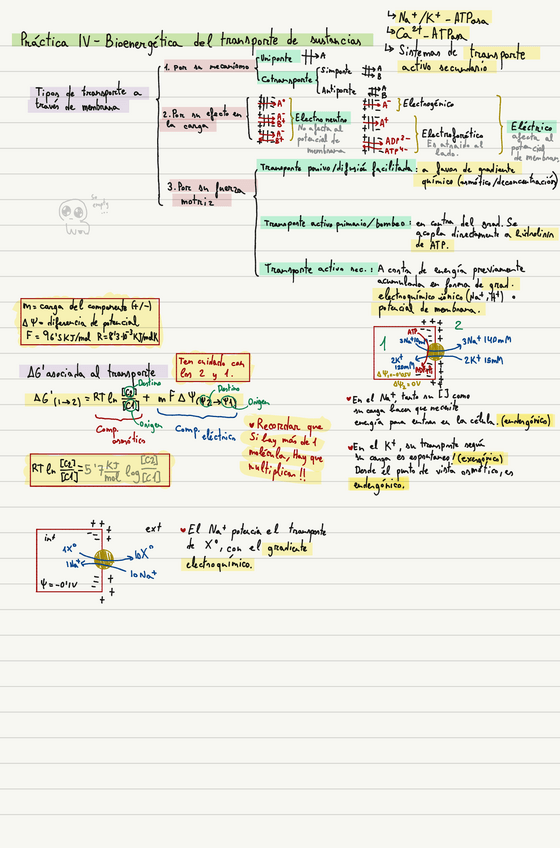 ↳ Na⁺/K⁺ - ATPasa
↳ Ca²⁺ - ATPasa
↳ Sistemas de transporte activo secundario
Práctica IV - Bioenergética del transporte de sustancias
Tipos de transporte a
través de membrana
1. Por su mecanismo
Uniporte
A
Cotransporte
Simporte
A
B
Antiporte
A
B
2. Por su efecto en
la carga
A⁺
B⁻
A⁺
Electroneutro
No afecta al
potencial de
membrana
A⁻
Electrogénico
A⁺
ADP³⁻
ATP⁴⁻
Electroforético
Es atraído al
lado.
Eléctrico
afecta al
potencial
de membrana
3. Por su fuerza
motriz
Transporte pasivo/difusión facilitada: a favor de gradiente
químico (osmótico/deconcentración)
Transporte activo primario/bombeo: en contra del grad. Se
acopla directamente a hidrólisis
de ATP.
Transporte activo sec.: A costa de energía previamente
acumulada en forma de grad.
electroquímico iónico (Na⁺, H⁺) o
potencial de membrana.
So
empty
Wow
m = carga del componente (+/-)
ΔΨ = diferencia de potencial
F = 96'5 KJ/mol R = 8'3·10⁻³ KJ/molK
1
2
ATP
3Na⁺ 140mM
2K⁺
2K⁺ 15mM
ΔΨ₂ = 0V
ΔG' asociada al transporte
Ten cuidado con
los 2 y 1.
ΔG' (1→2) = RT ln [C2]/[C1] + m F ΔΨ (Ψ2 → Ψ1)
Destino
Origen
Destino
Origen
Comp.
osmótico
Comp. eléctrica
RT ln [C2]/[C1] = 5'7 KJ/mol log [C2]/[C1]
♥ Recordar que
Si hay más de 1
molécula, Hay que
multiplicar!!
♥ En el Na⁺, tanto su [] como
su carga hacen que necesite
energía para entrar en la célula. (endergónico)
♥ En el K⁺, su transporte según
su carga es espontáneo! (exergónico)
Desde el punto de vista osmótico, es
endergónico.
int
ext
1X⁰
10X⁰
1Na⁺
10Na⁺
Ψ = -0'1V
♥ El Na⁺ potencia el transporte
de X⁰, con el gradiente
electroquímico.